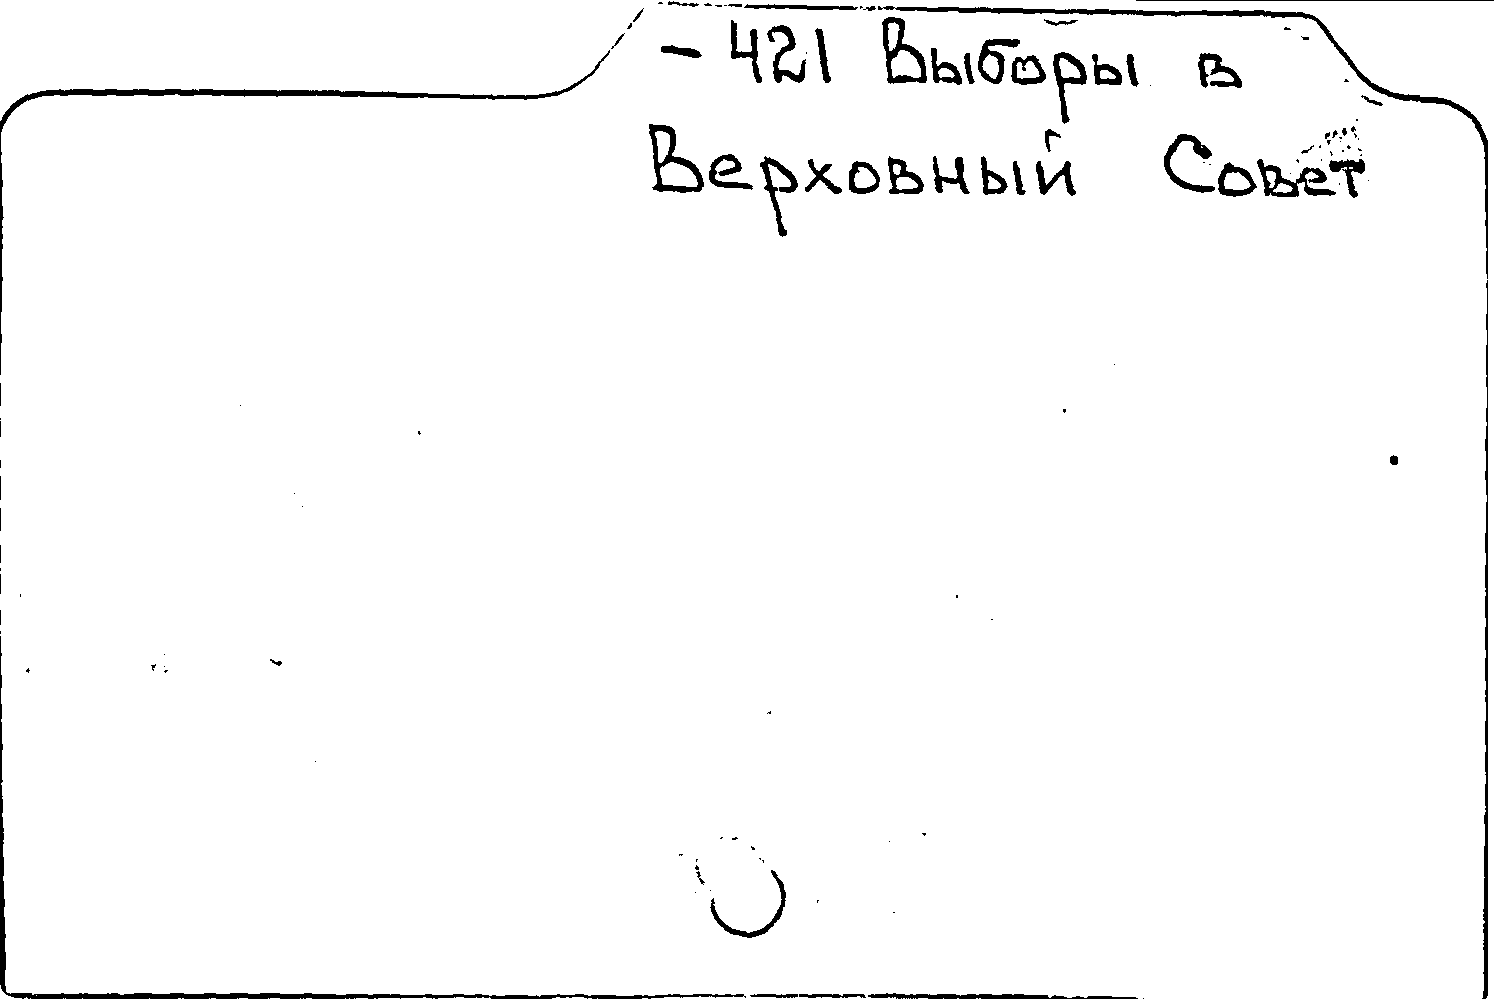 - 421 Выборы в
Верховный Совет